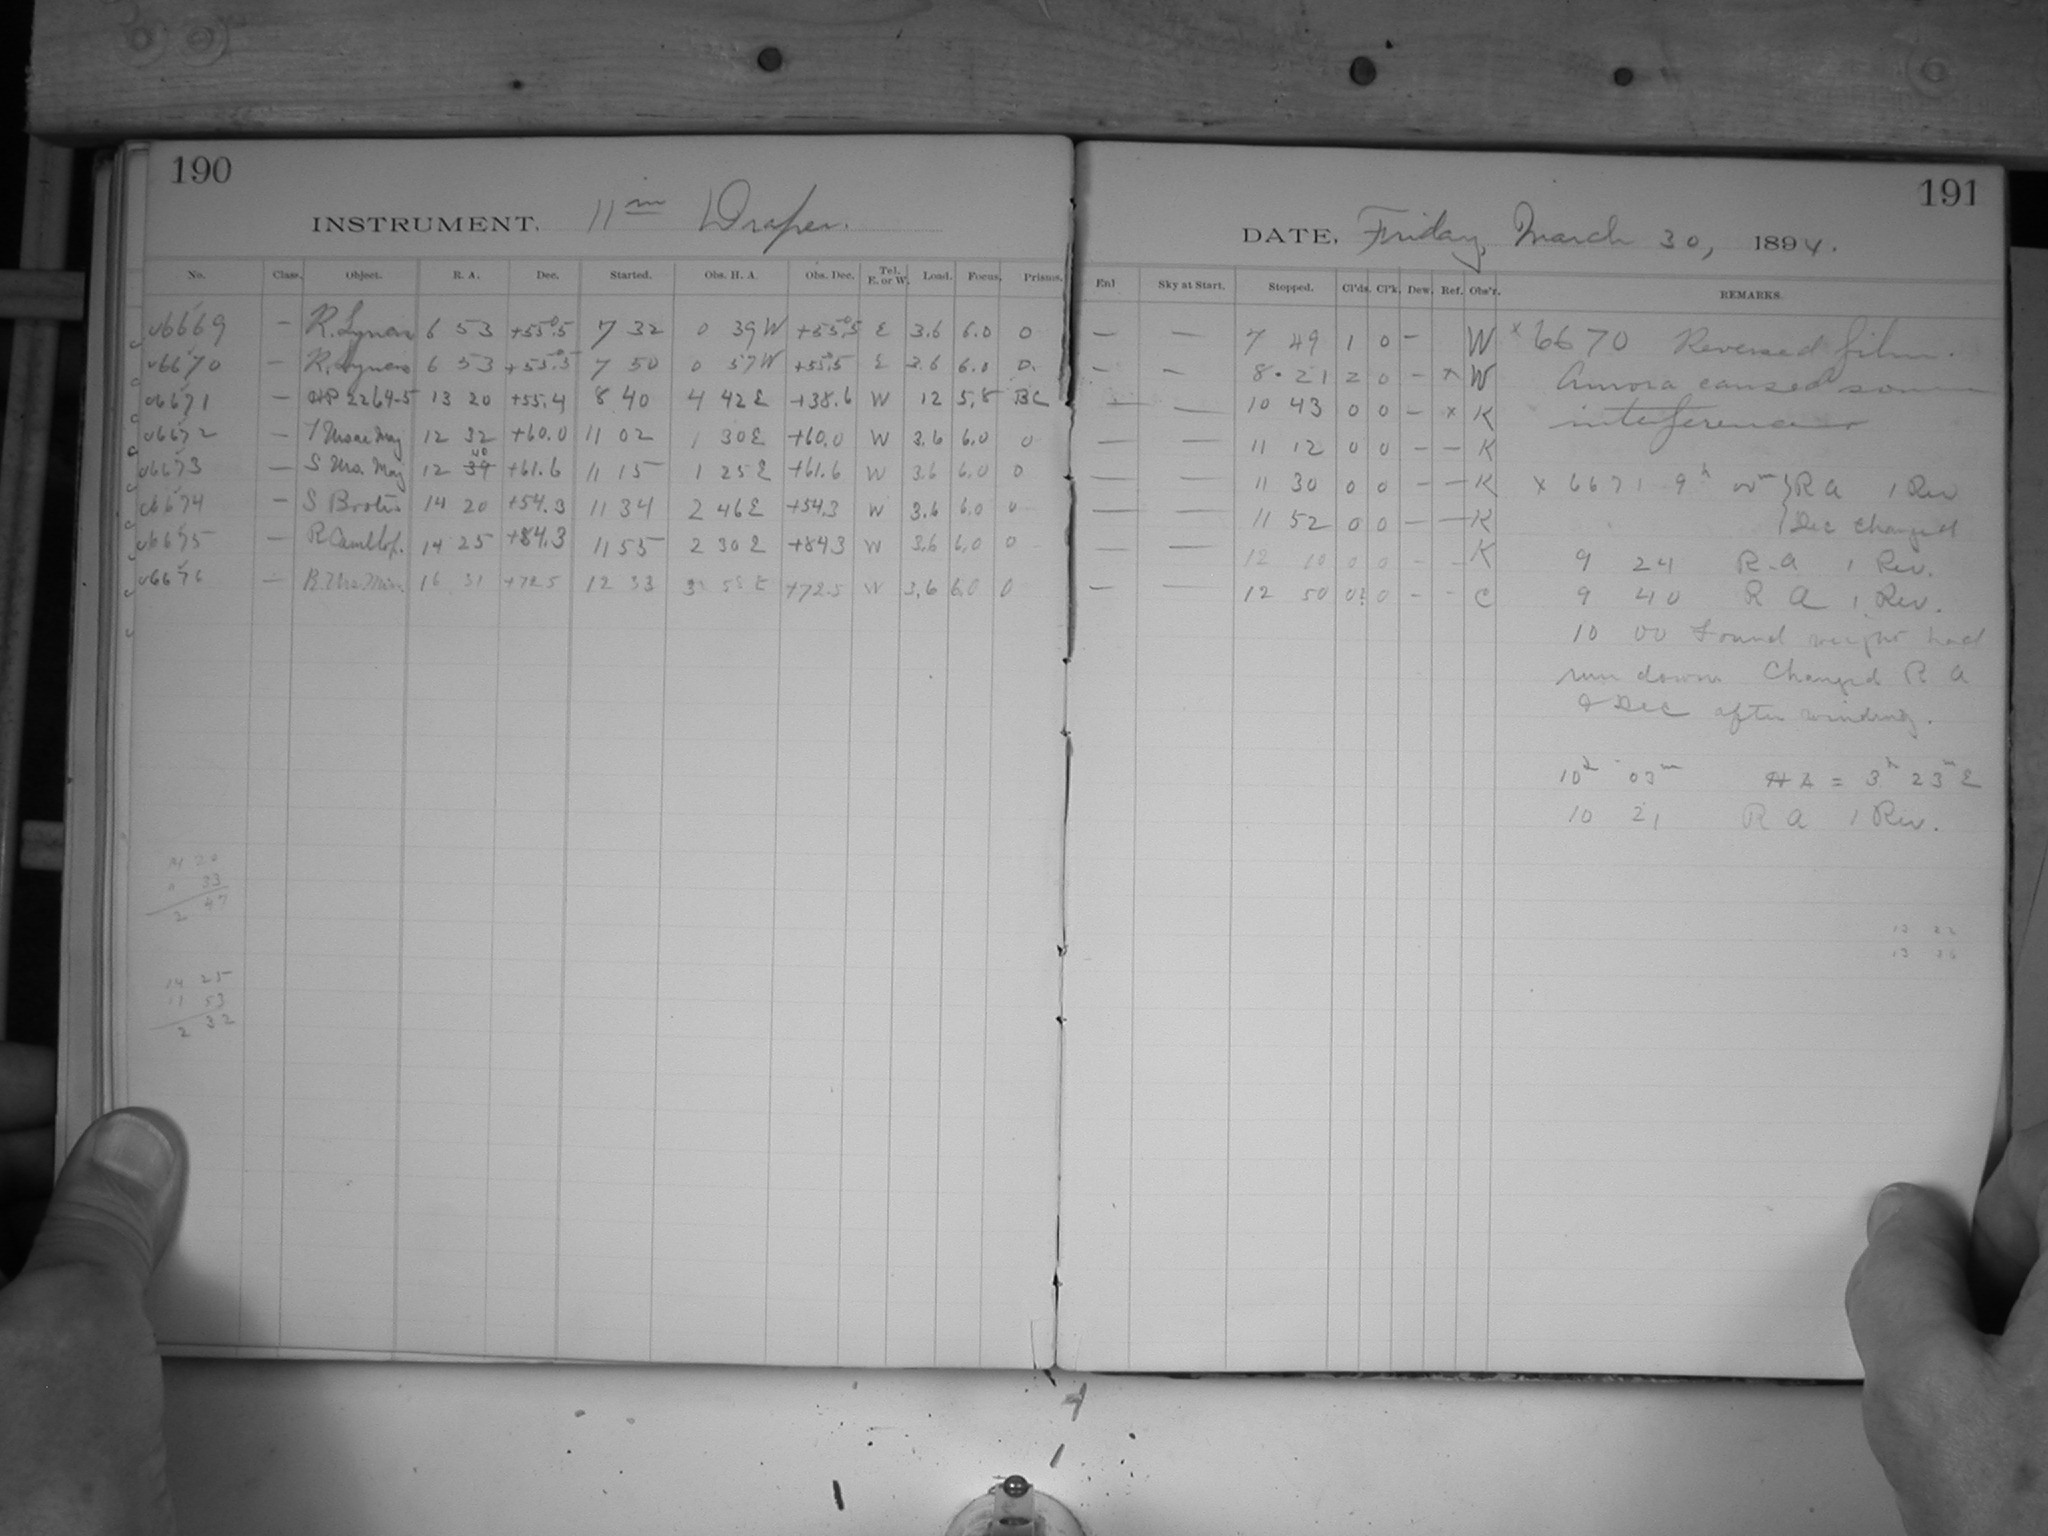 190
INSTRUMENT. 11 in Draper.
No. Class. Object. R. A. Dec. Started. Obs. H. A. Obs. Dec. Tel. E. or W. Load. Focus. Prisms.
6669 — R. Lyncis 6 53 +55.5 7 32 0 39 W +55.5 E 3.6 6.0 0
6670 — R. Lyncis 6 53 +55.5 7 50 0 57 W +55.5 E 3.6 6.0 0.
6671 — HP 2264-5 13 20 +55.4 8 40 4 42 E +38.6 W 12 5.8 BC
6672 — T Ursae Maj 12 32 +60.0 11 02 1 30 E +60.0 W 3.6 6.0 0
6673 — S Urs. Maj 12 39 40 +61.6 11 15 1 25 E +61.6 W 3.6 6.0 0
6674 — S Bootis 14 20 +54.3 11 34 2 46 E +54.3 W 3.6 6.0 0
6675 — R Camelop. 14 25 +84.3 11 55 2 30 E +84.3 W 3.6 6.0 0
6676 — R. Urs. Min. 16 31 +72.5 12 33 3 58 E +72.5 W 3.6 6.0 0
14 20
11 33
2 47
14 25
11 53
2 32
191
DATE, Friday, March 30, 1894.
Enl Sky at Start. Stopped. Cl'ds. Cl'k. Dew. Ref. Obs'r. REMARKS.
— — 7 49 1 0 — W
— — 8 21 2 0 — x W
— — 10 43 0 0 — x K
— — 11 12 0 0 — — K
— — 11 30 0 0 — — K
— — 11 52 0 0 — — K
— — 12 10 0 0 — — K
— — 12 50 0? 0 — — C
x 6670 Reversed film.
Aurora caused some
interference
x 6671 9h 00m } R A 1 Rev
} Dec changed
9 24 R. A 1 Rev.
9 40 R A 1 Rev.
10 00 Found weight had
run down Changed R A
& Dec after winding.
10h 03m HA = 3h 23m E
10 21 R A 1 Rev.
13 22